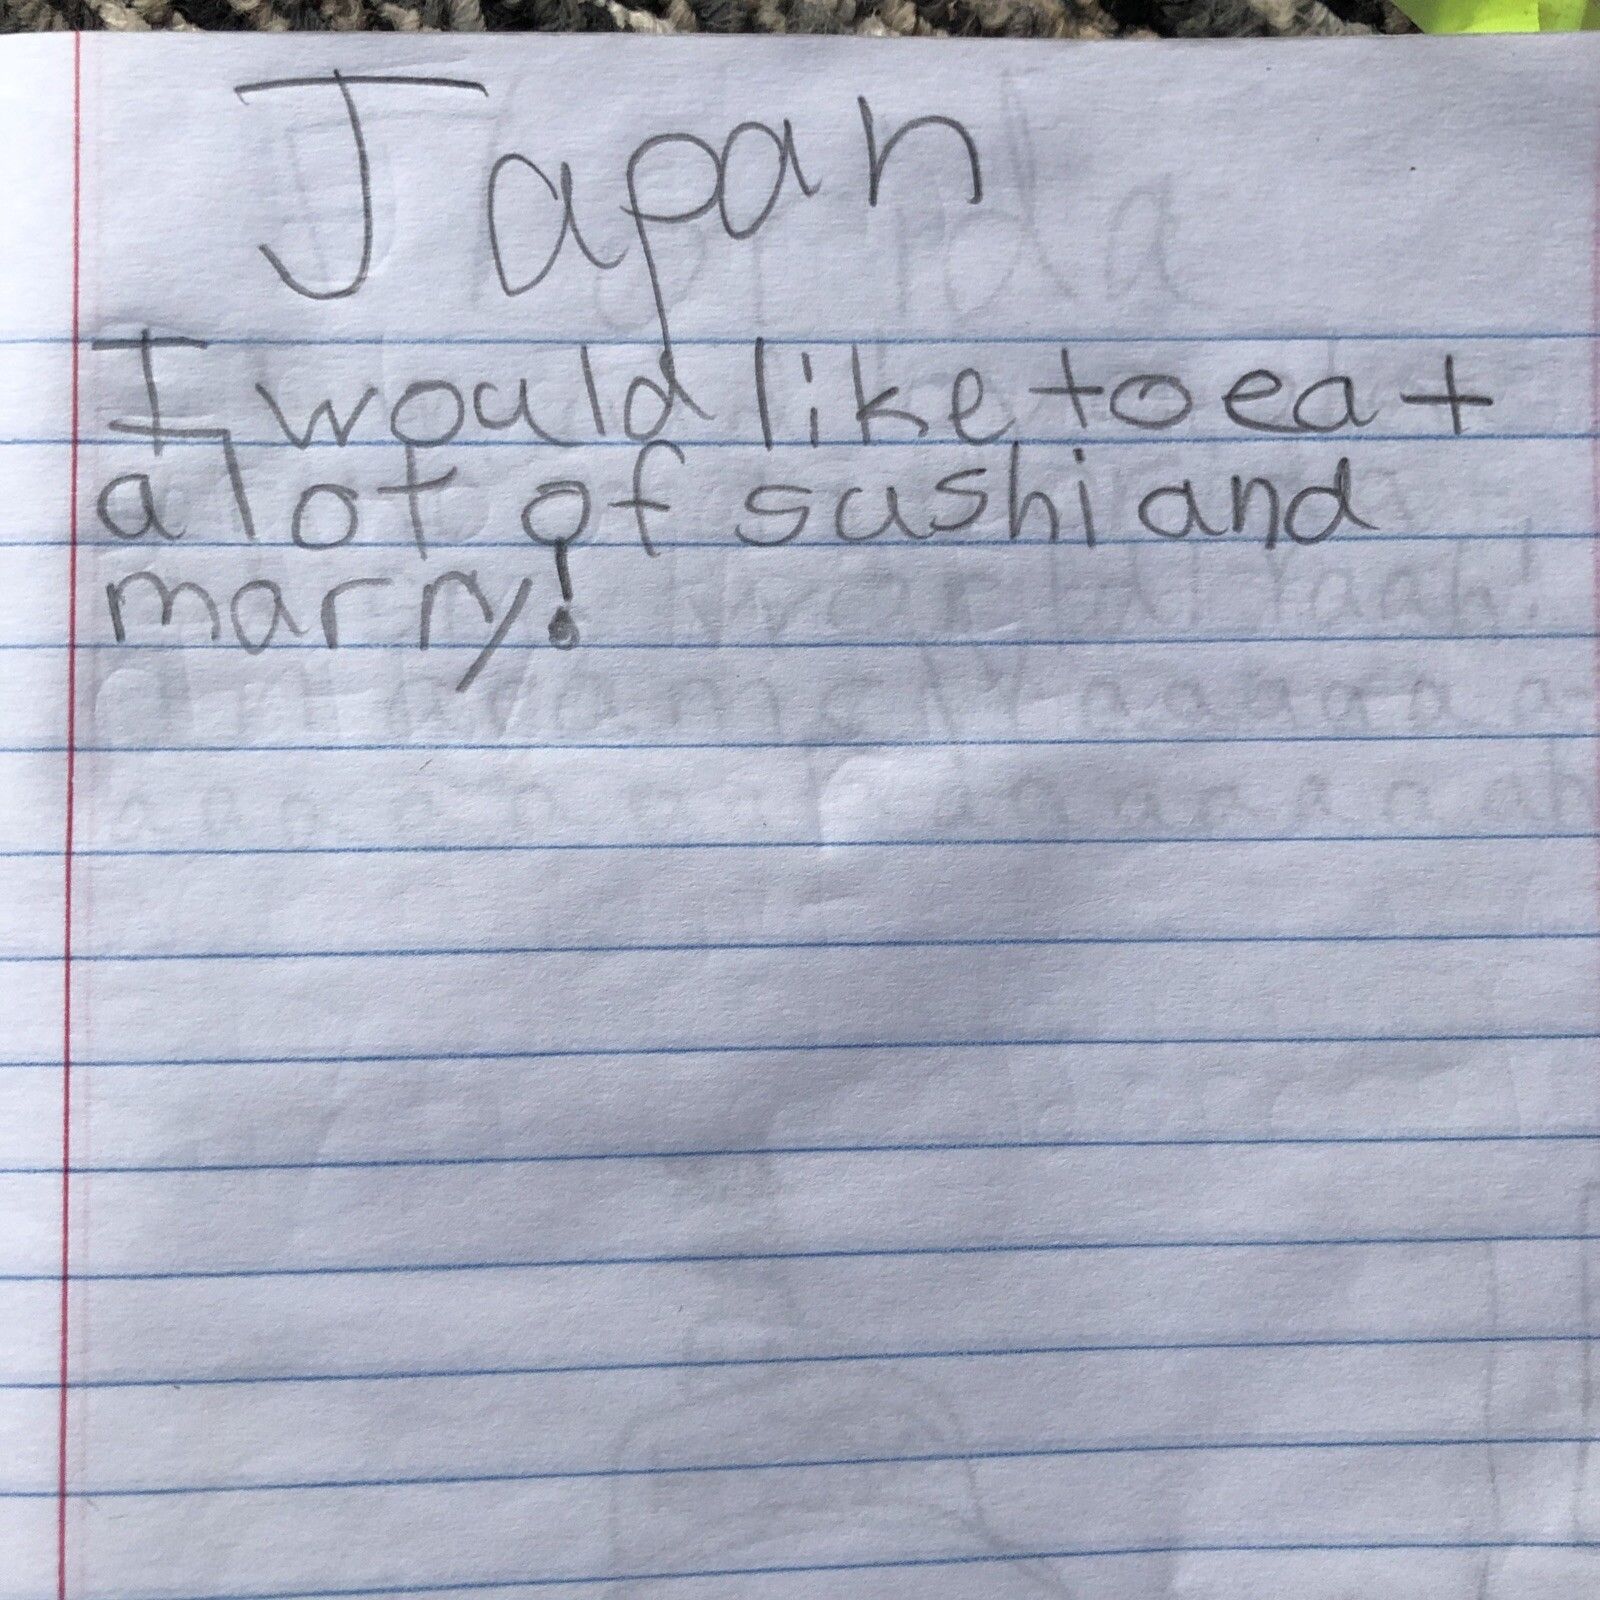 Japan
I would like to eat
a lot of sushi and
marry!